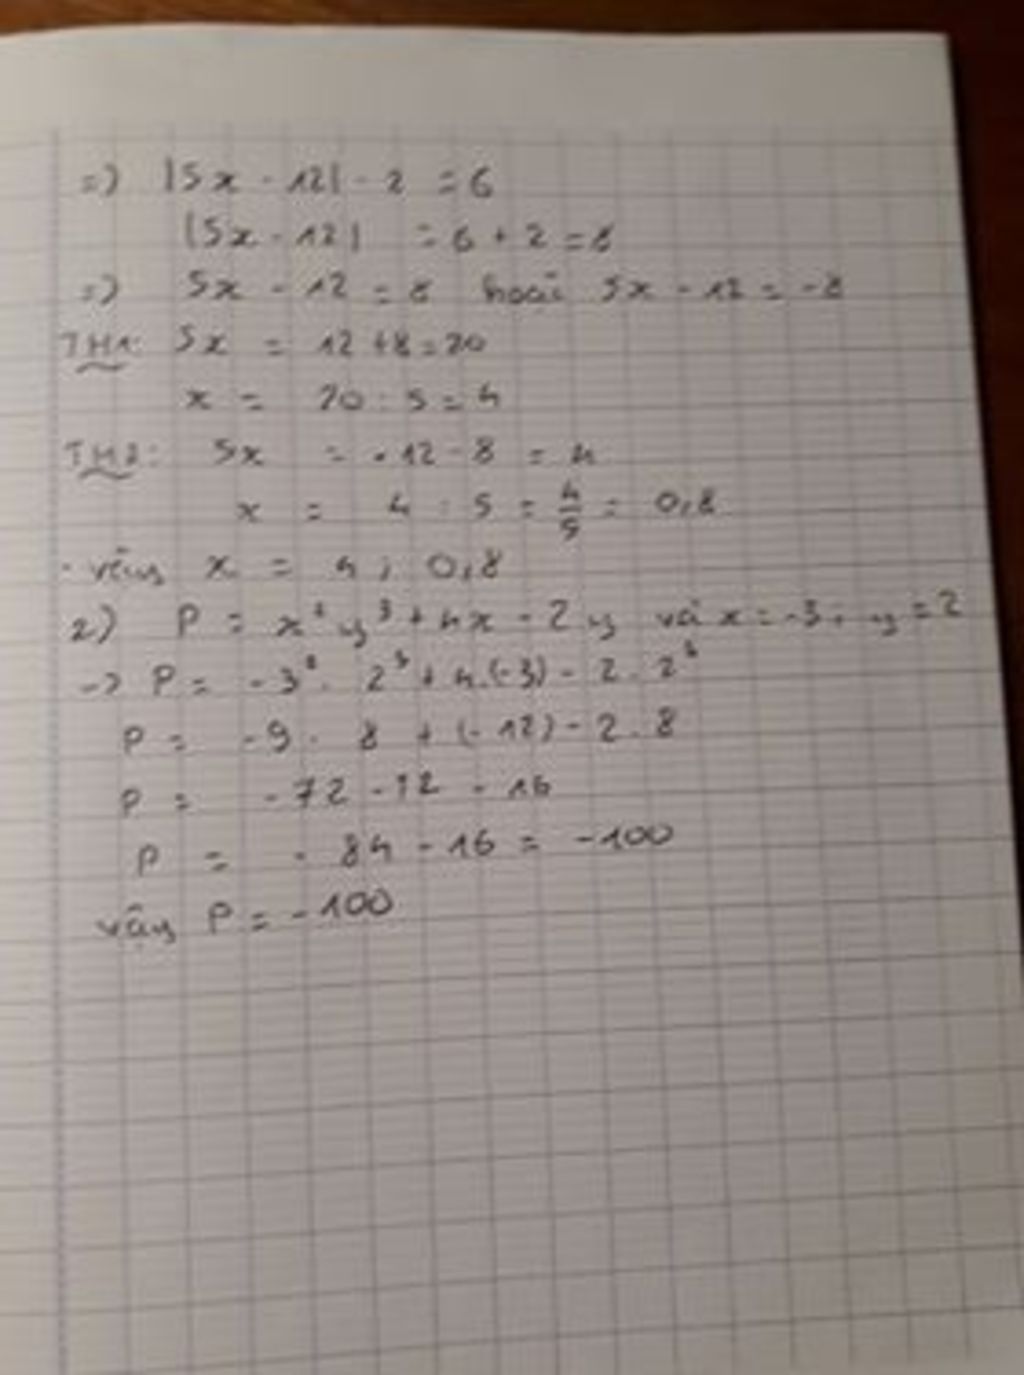 => |5x - 12| - 2 = 6
|5x - 12| = 6 + 2 = 8
=> 5x - 12 = 8 hoặc 5x - 12 = -8
TH1: 5x = 12 + 8 = 20
x = 20 : 5 = 4
TH2: 5x = 12 - 8 = 4
x = 4 : 5 = 4/5 = 0,8
vậy x = 4 ; 0,8
2) P = x² y³ + 4x - 2y và x = -3 ; y = 2
-> P = -3² . 2³ + 4.(-3) - 2 . 2³
P = -9 . 8 + (-12) - 2 . 8
P = -72 - 12 - 16
P = -84 - 16 = -100
vậy P = -100